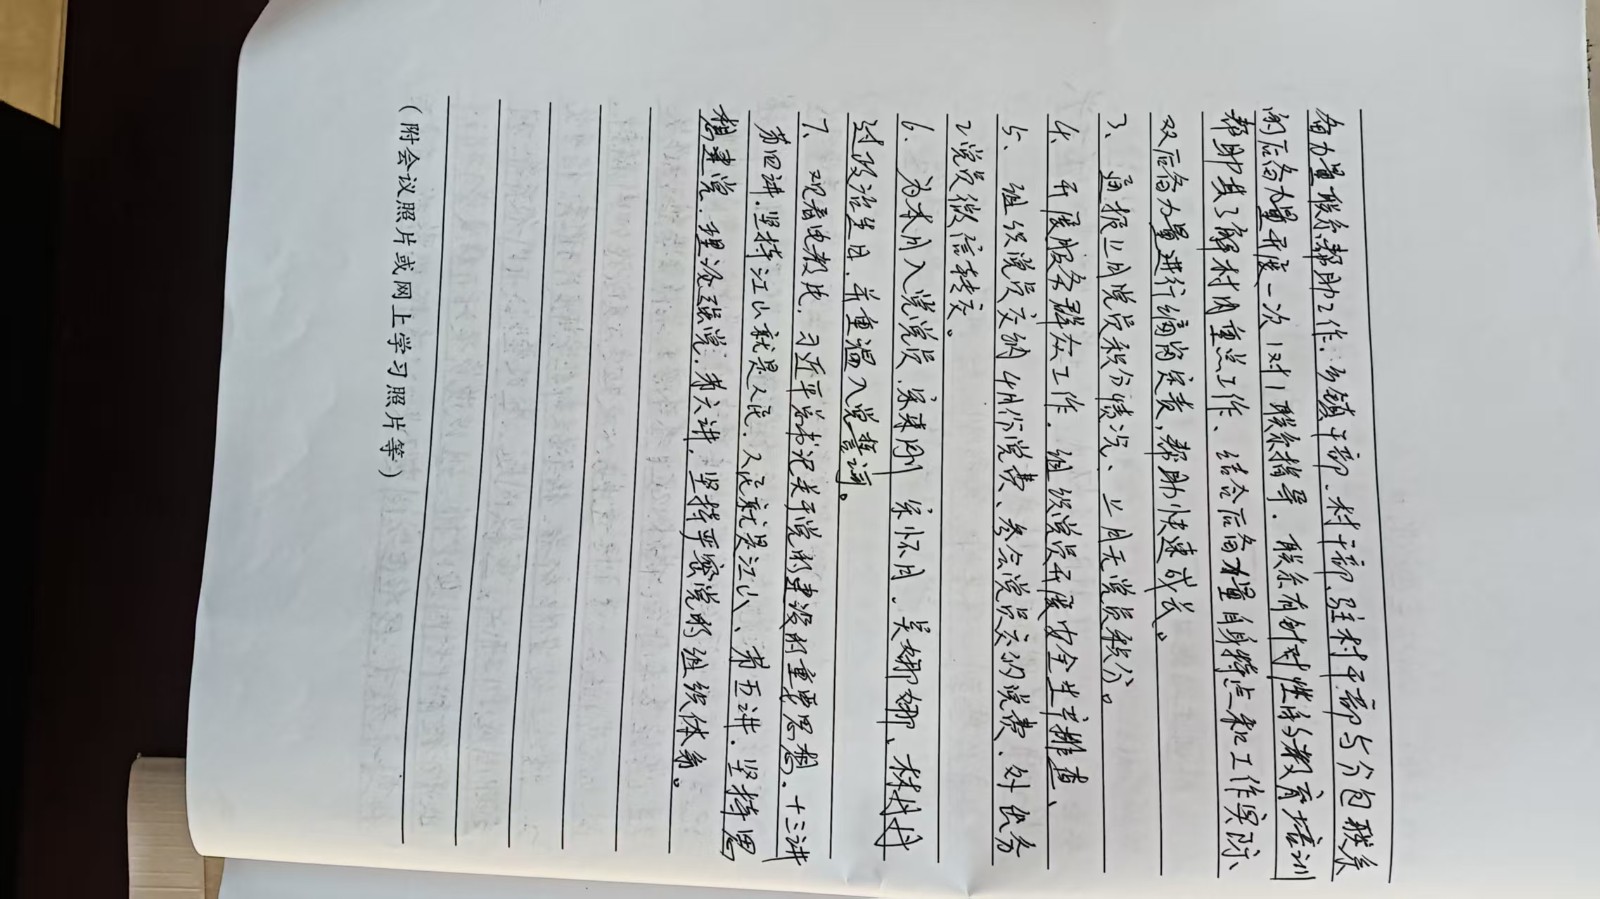 备力量联系帮助工作：乡镇干部、村干部、驻村干部与分包联系
的后备力量开展一次1对1联系指导。联系有针对性的教育培训
帮助其了解村内重点工作、结合后备力量自身特点和工作实际、
对后备力量进行编岗定责，帮助快速成长。
3、通报上月党员积分情况、上月无党员积分。
4、开展服务群众工作．组织党员开展安全生产排查、
5、组织党员交纳4月份党费、参会党员交纳党费、外出务
工党员微信转交。
6、为本月入党党员 宋怀月、吴娜娜、林
过政治生日．并重温入党誓词。
7、观看电教片．习近平总书记关于党的建设的重要思想．十三讲
第四讲．坚持江山就是人民．人民就是江山、第五讲．坚持思
想建党．理论强党．第六讲．坚持严密党的组织体系。
（附会议照片或网上学习照片等）